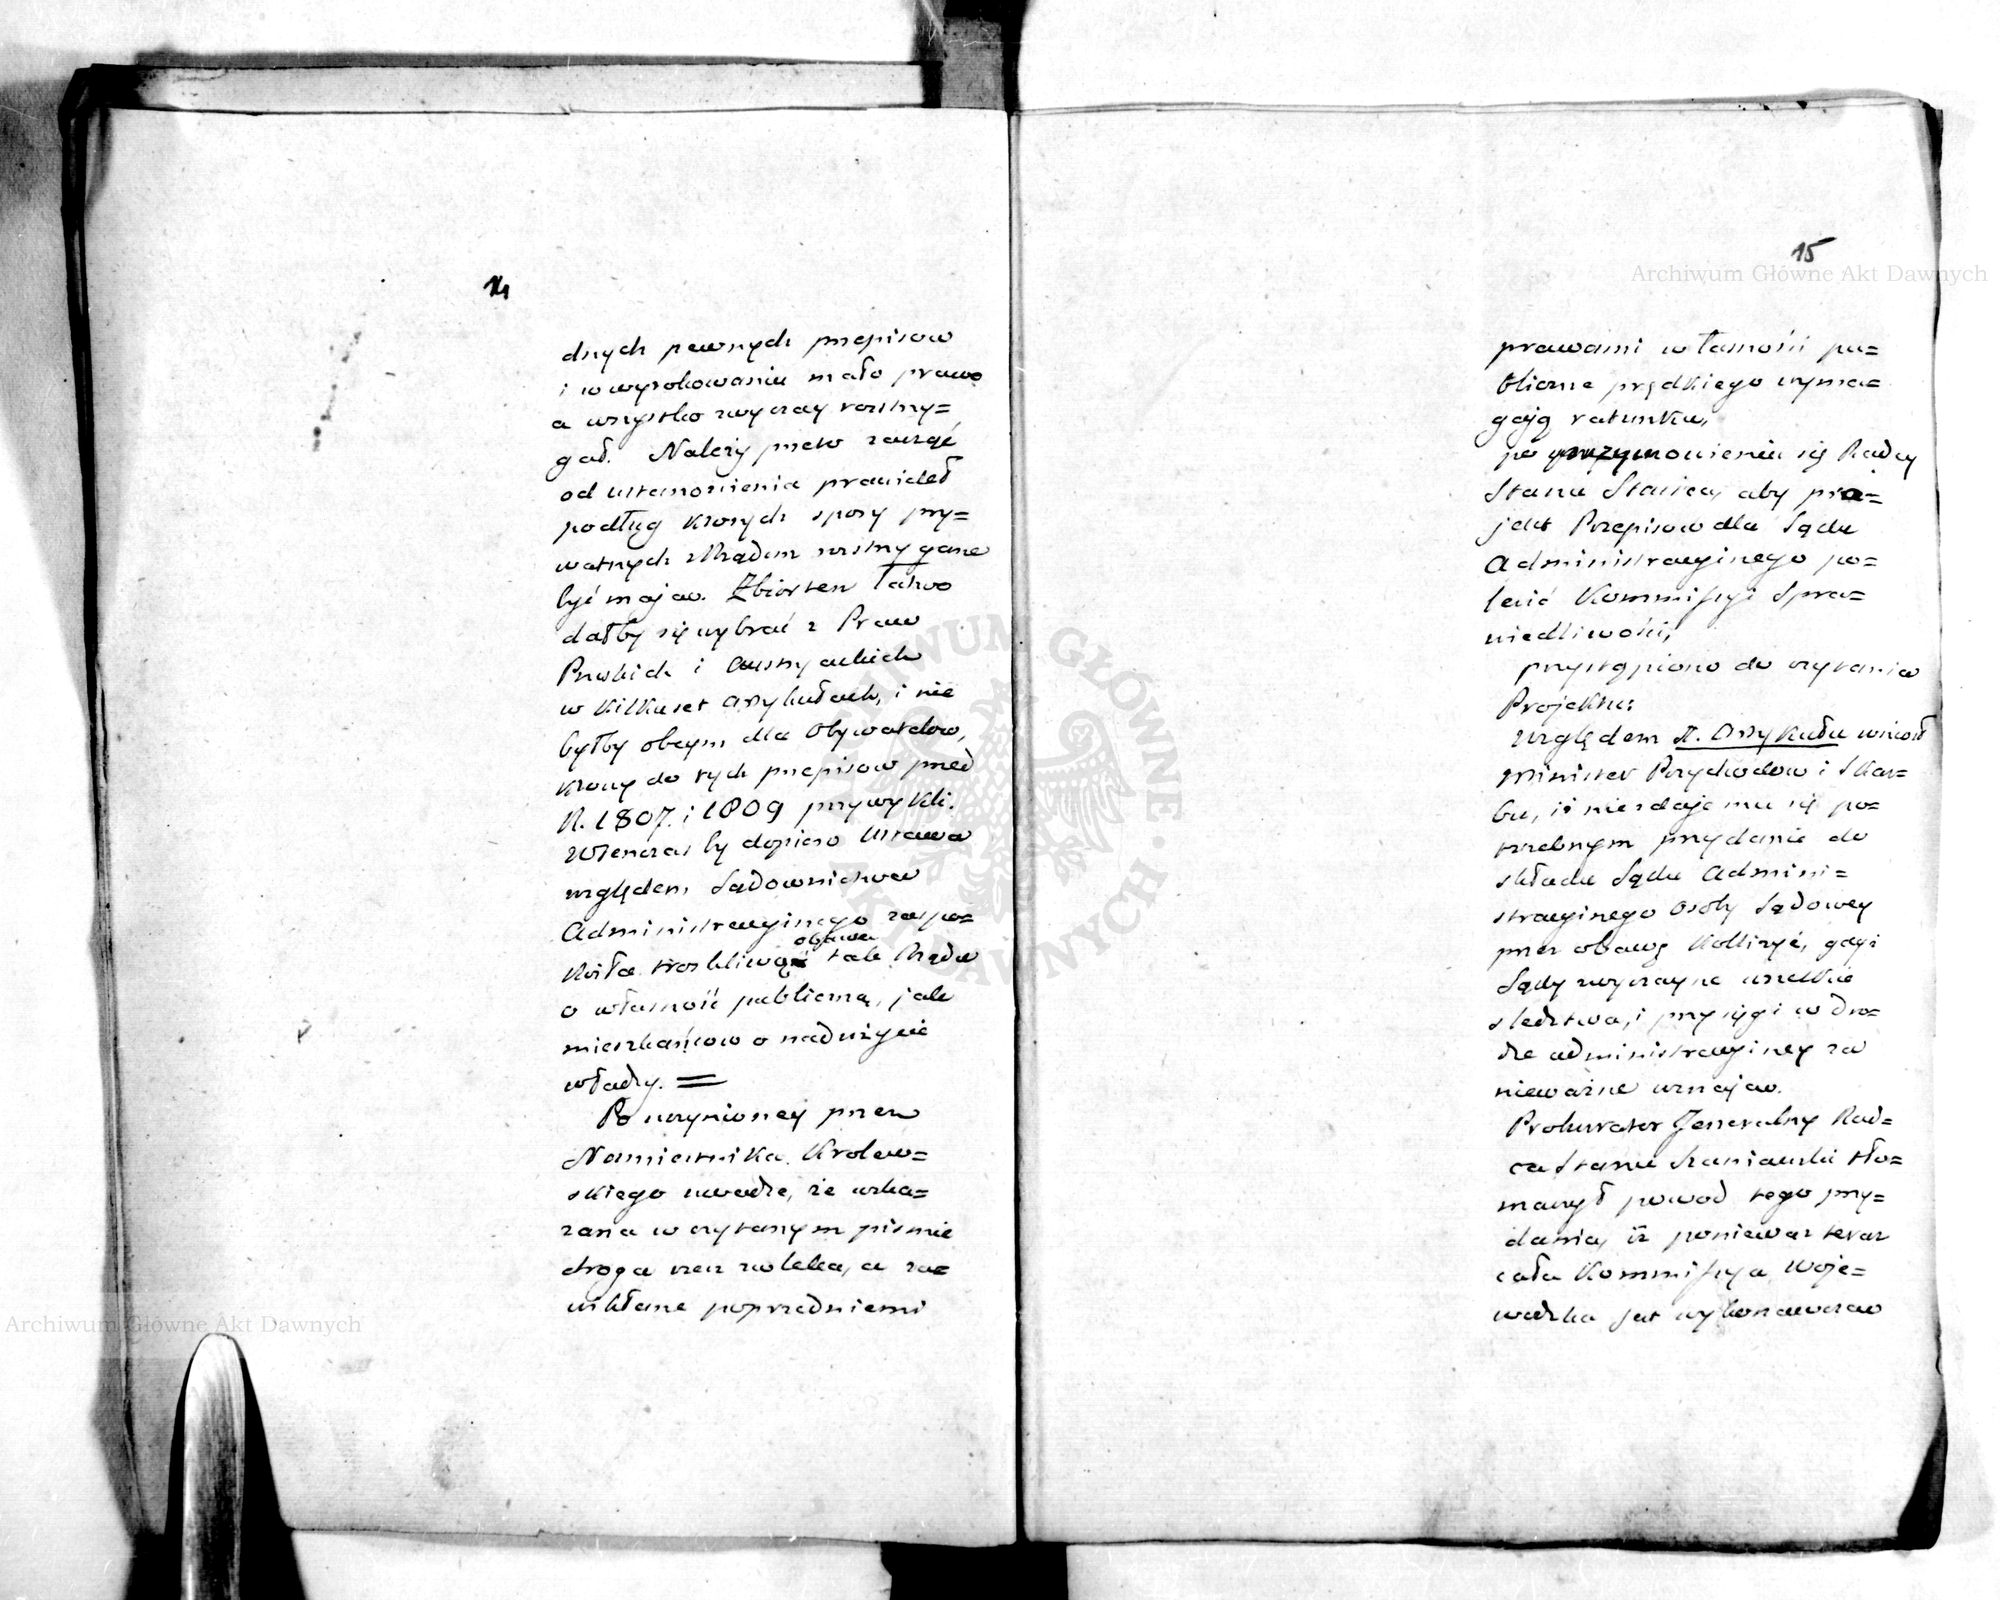 14
dnych pewnych przepisow
i w wyrokowaniu mało prawo
a wszystko zwyczay rozstrzy=
gał. Należy przeto zacząć
od ustanowienia prawideł
podług ktorych spory pry=
watnych z Rządem rozstrzygane
być maią. Zbior ten łatwo
dałby się wybrać z Praw
Pruskich i Austryackich
w kilkuset artykułach, i nie
byłby obcym dla Obywatelow,
ktorzy do tych przepisow przed
R. 1807. i 1809 przywykli.
Wtenczas by dopiero Ustawa
względem Sądownictwa
Administracyinego zaspo=
koiła troskliwość obawę tak Rządu
o własność publiczną, jak
mieszkańcow o nadużycie
władzy. =
Po uczynioney przez
Namiestnika Krolew=
skiego uwadze, że wska=
zana w czytanym piśmie
droga rzecz zwleka, a za=
wikłane poprzedniemi
15
prawami własności pu=
bliczne prędkiego wyma=
gają ratunku,
po przymowieniu się Radcy
Stanu Staszica, aby pro=
jekt Przepisow dla Sądu
Administracyinego po=
lecić Kommissyi Spra=
wiedliwości,
przystąpiono do czytania
Projektu:
względem Artykułu wniosł
Minister Przychodow i Skar=
bu, iż nie zdaje mu się po=
trzebnym przydanie do
składu Sądu Admini=
stracyinego Osoby Sądowey
przez obawę Kollizyi, gdyż
Sądy zwyczayne wszelkie
śledztwa, i przysięgi w dro=
dze administracyiney za
nieważne uznają.
Prokurator Jeneralny Rad=
ca Stanu Szaniawski tło=
maczył powod tego przy=
dania, iż ponieważ teraz
cała Kommissya Woje=
wodzka jest wykonawcza
Archiwum Główne Akt Dawnych
Archiwum Główne Akt Dawnych
ARCHIWUM GŁÓWNE AKT DAWNYCH